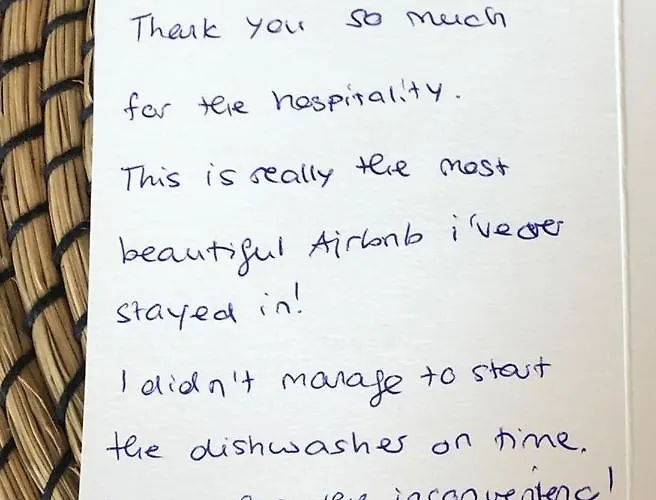 Thank you so much
for the hospitality.
This is really the most
beautiful Airbnb i've ever
stayed in!
I didn't manage to start
the dishwasher on time.
the inconvenience!